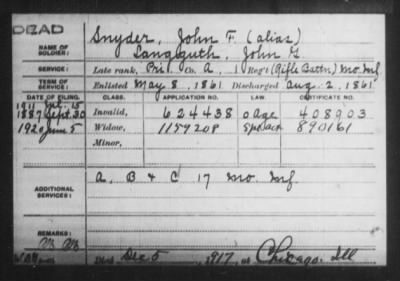 DEAD
NAME OF SOLDIER: Snyder, John F. (alias)
Langguth, John G.
SERVICE: Late rank, Pri Co. A, 1 Reg't (Rifle Battn) Mo. Inf
TERM OF SERVICE: Enlisted May 8, 1861 Discharged Aug. 2, 1861
DATE OF FILING. CLASS. APPLICATION NO. LAW. CERTIFICATE NO.
1911 15
1887 Sept. 30 Invalid, 624438 o age 408903
1920 June 5 Widow, 1159208 890161
Minor,
ADDITIONAL SERVICES: A, B & C 17 Mo. Inf.
REMARKS:
Died Dec 5, 1917, at Chicago. Ill